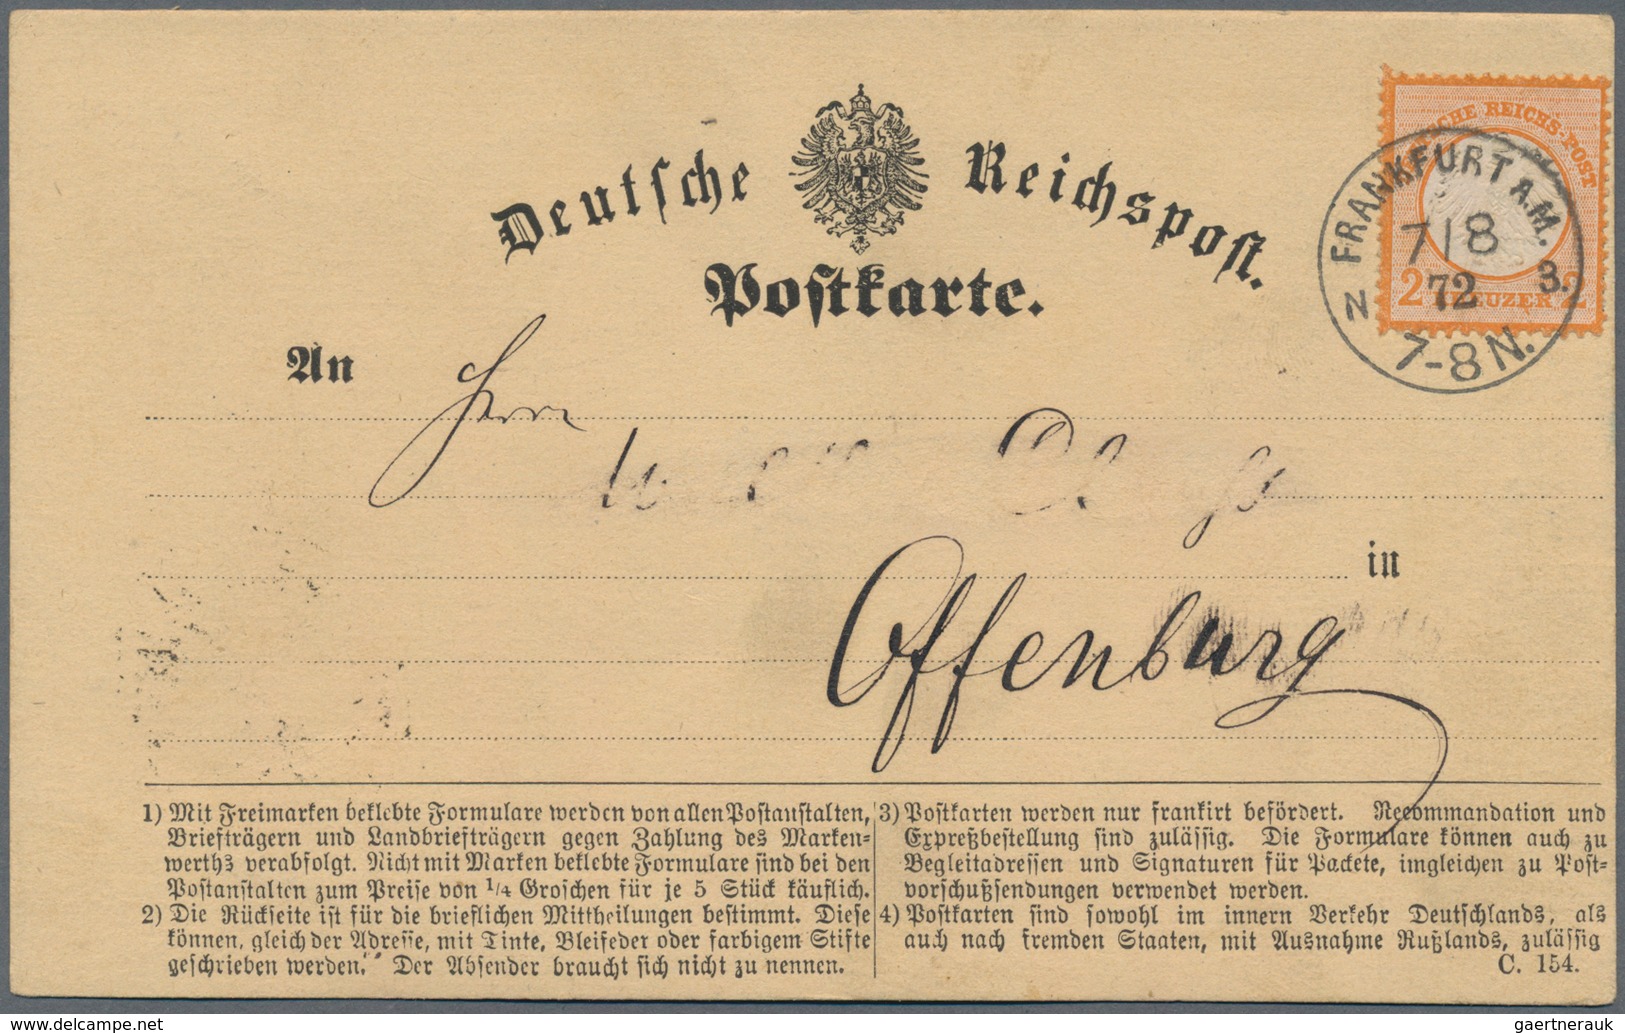 Deutsche Reichspost.
Postkarte.
DEUTSCHE REICHS-POST
2 KREUZER 2
FRANKFURT A.M.
7/8
72 3.
N
7-8 N.
An
Herrn
in
Offenburg
1) Mit Freimarken beklebte Formulare werden von allen Postanstalten,
Briefträgern und Landbriefträgern gegen Zahlung des Marken-
werths verabfolgt. Nicht mit Marken beklebte Formulare sind bei den
Postanstalten zum Preise von 1/4 Groschen für je 5 Stück käuflich.
2) Die Rückseite ist für die brieflichen Mittheilungen bestimmt. Diese
können, gleich der Adresse, mit Tinte, Bleifeder oder farbigem Stifte
geschrieben werden. Der Absender braucht sich nicht zu nennen.
3) Postkarten werden nur frankirt befördert. Recommandation und
Expreßbestellung sind zulässig. Die Formulare können auch zu
Begleitadressen und Signaturen für Packete, imgleichen zu Post-
vorschußsendungen verwendet werden.
4) Postkarten sind sowohl im innern Verkehr Deutschlands, als
auch nach fremden Staaten, mit Ausnahme Rußlands, zulässig
C. 154.
gaertnerauk
delcampe.net